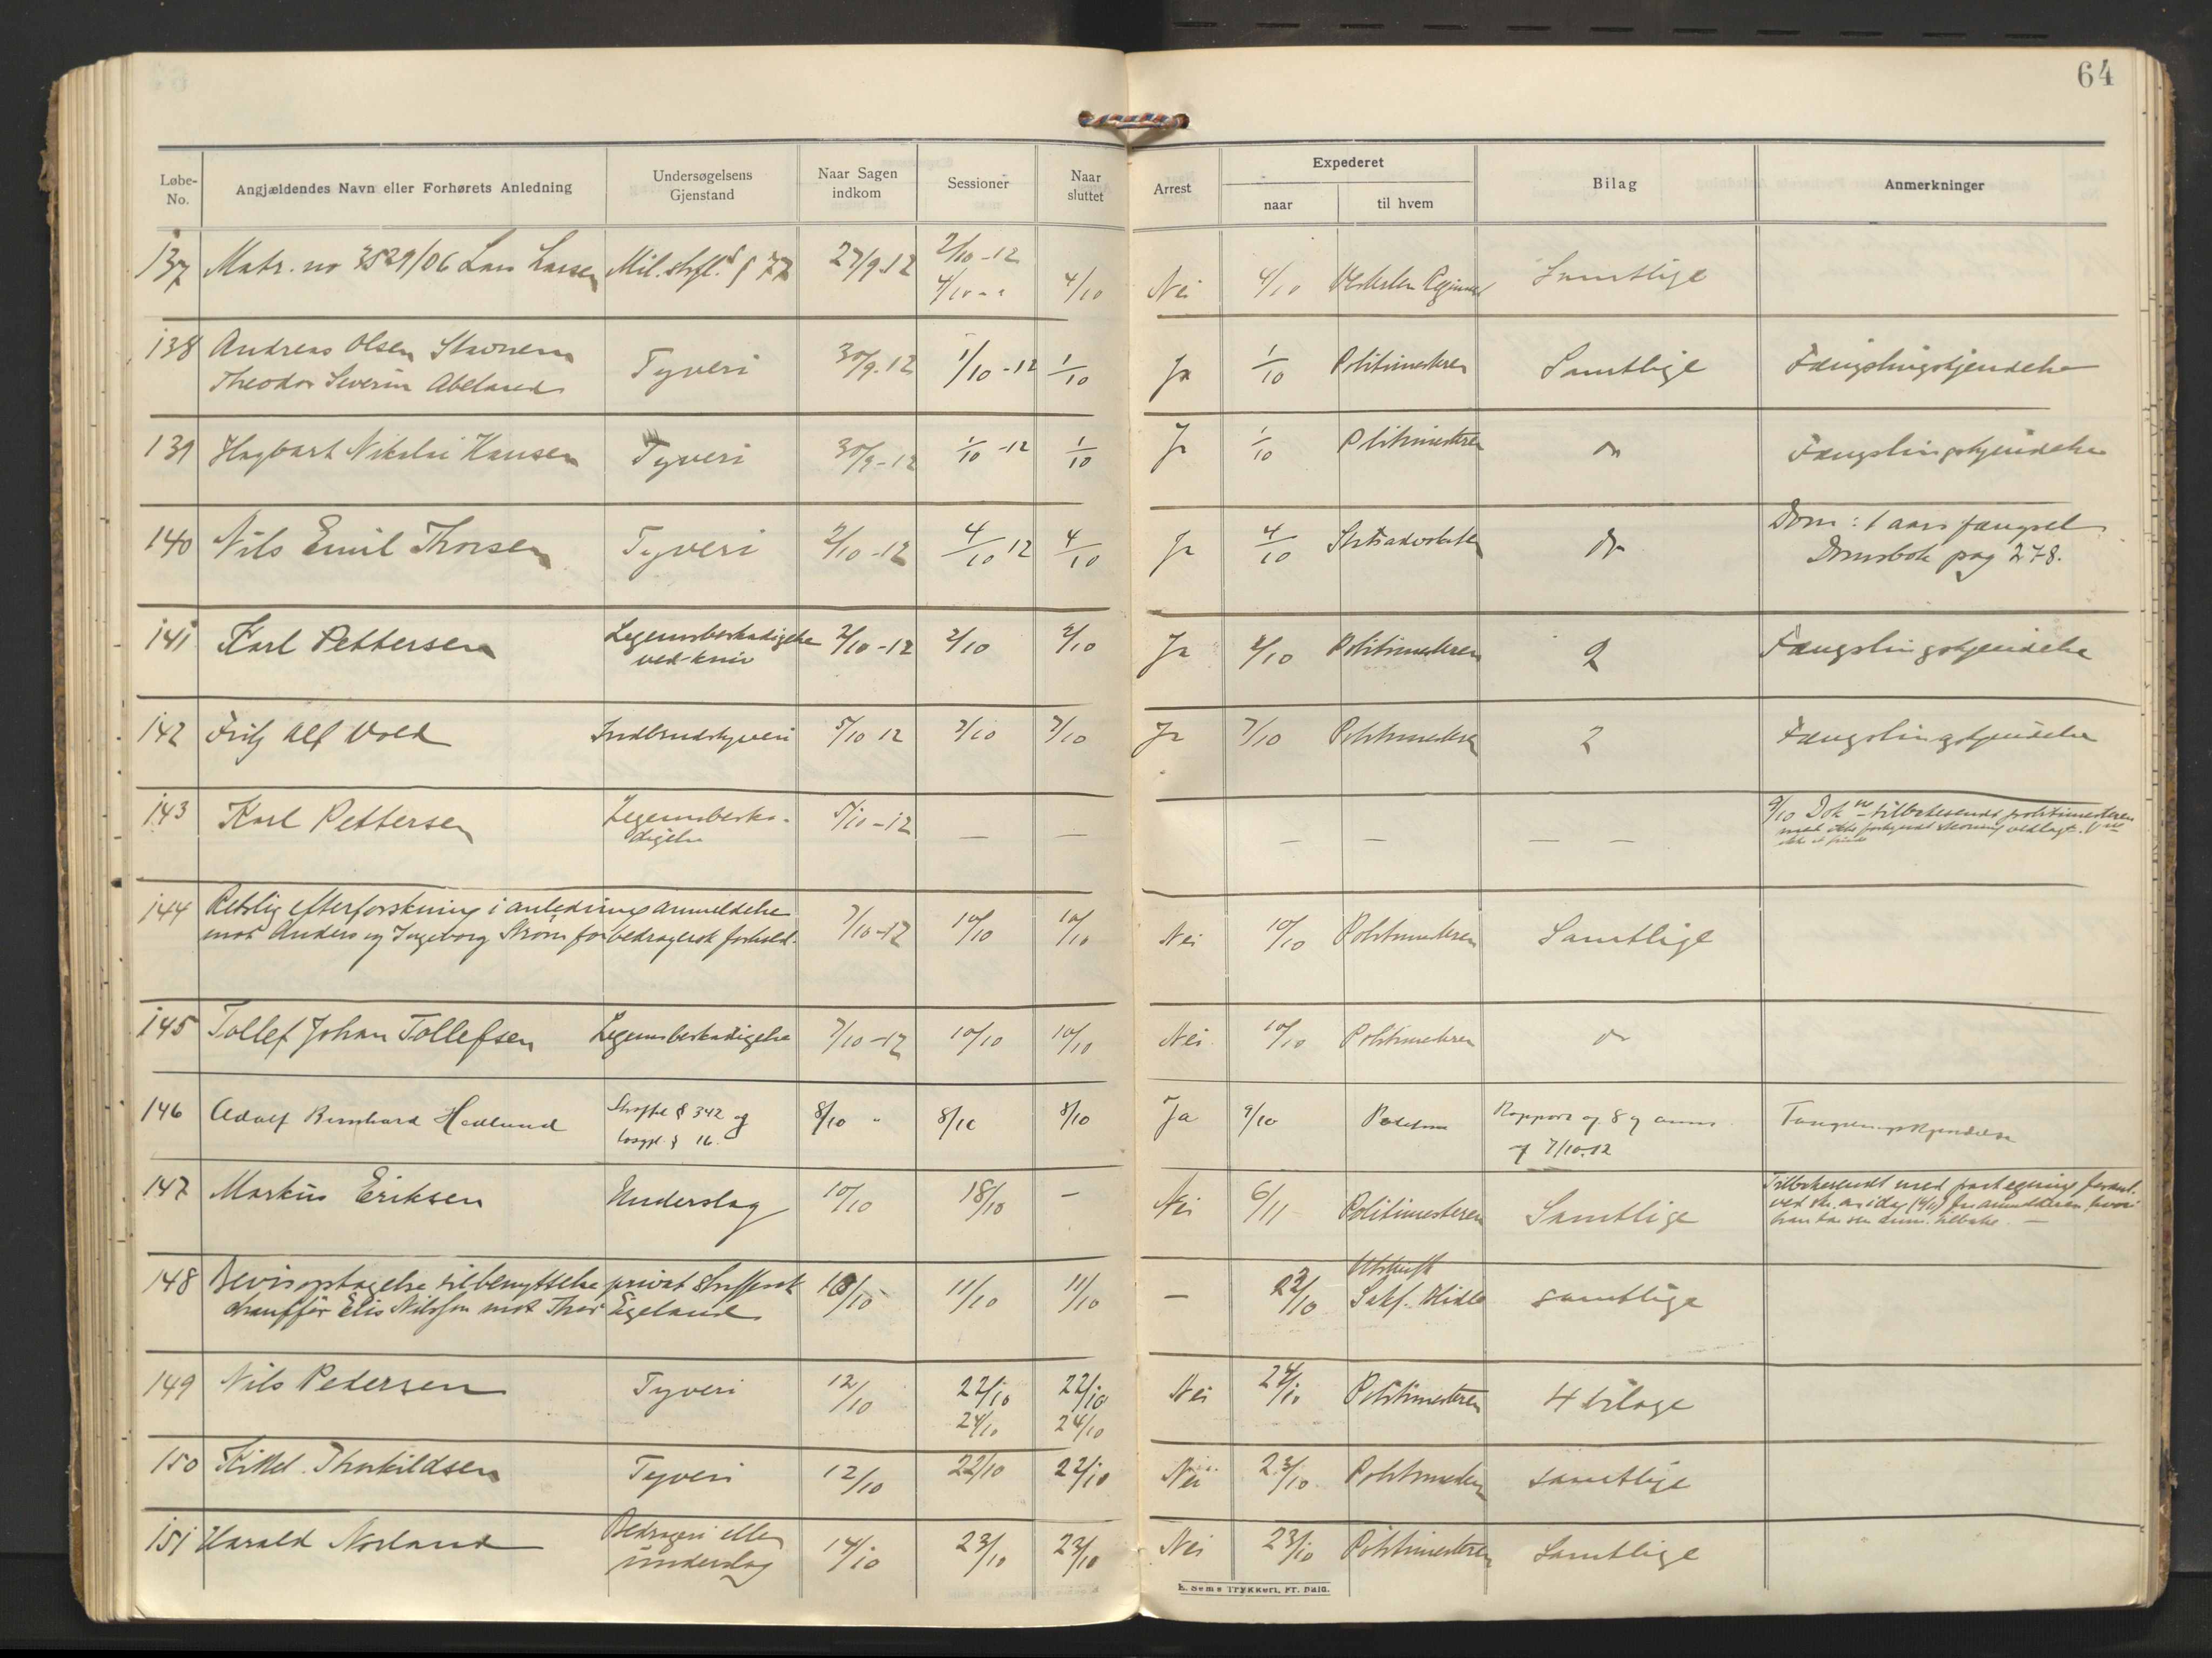 64
Løbe-No. Angjældendes Navn eller Forhørets Anledning Undersøgelsens Gjenstand Naar Sagen indkom Sessioner Naar sluttet Arrest Expederet naar til hvem Bilag Anmerkninger
2/10-12
137 Matr. no 3529/06 Lars Larsen Mil. strfl. § 77 27/9.12 4/10 - " 4/10 Nei 4/10 Regiment Samtlige
138 Andreas Olsen Stavnem
Theodor Severin Abeland Tyveri 30/9.12 1/10-12 1/10 Ja 1/10 Politimesteren Samtlige Fængslingskjendelse
139 Hagbart Nikolai Hansen Tyveri 30/9-12 1/10-12 1/10 Ja 1/10 Politimesteren do Fængslingskjendelse
140 Nils Emil Thorsen Tyveri 2/10-12 4/10 12 4/10 Ja 4/10 Statsadvokaten do Dom: 1 aars fængsel
Domsbok pag 278.
141 Karl Pettersen Legemsbeskadigelse
ved kniv 2/10-12 2/10 2/10 Ja 2/10 Politimesteren 2 Fængslingskjendelse
142 Fritz Alf Vold Indbrudstyveri 5/10 12 7/10 7/10 Ja 7/10 Politimesteren 2 Fængslingskjendelse
143 Karl Pettersen Legemsbeska-
digelse 5/10-12 — — — — — — 9/10 Dok ne tilbakesendt politimesteren
med
144 Retslig efterforskning i anledning anmeldelse
mot Anders og Ingeborg Strøm for bedragersk forhold. 7/10-12 10/10 10/10 Nei 10/10 Politimesteren Samtlige
145 Tollef Johan Tollefsen Legemsbeskadigelse 7/10-12 10/10 10/10 Nei 10/10 Politimesteren do
146 Adolf Bernhard Hedlund Straffel § 342 og
løsgl. § 16. 8/10 " 8/10 8/10 Ja 9/10 Politim Rapport af 8 og anm.
af 7/10.12 Fængslingskjendelse
147 Markus Eriksen Underslag 10/10 18/10 — Nei 6/11 Politimesteren Samtlige Tilbakesendt med paategning
148 Bevisoptagelse til benyttelse privat straffesak
chauffør Elis Nilsson mot Thor Egeland 10/10 11/10 11/10 — 22/10 Utskrift
Sakf. Hidle samtlige
149 Nils Pedersen Tyveri 12/10 22/10 22/10 Nei 24/10 Politimesteren 4 bilage
24/10 24/10
150 Kittel Thorkildsen Tyveri 12/10 22/10 22/10 Nei 23/10 Politimesteren samtlige
151 Harald Norland Bedrageri eller
underslag 14/10 23/10 23/10 Nei 23/10 Politimesteren Samtlige
E. Sems Trykkeri, Fr. hald.